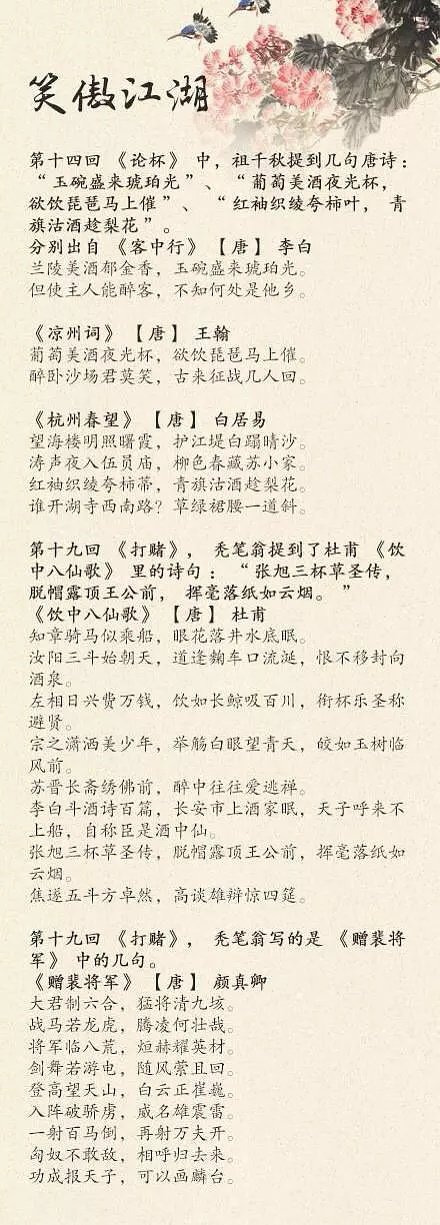 笑傲江湖
第十四回 《论杯》 中，祖千秋提到几句唐诗：
“玉碗盛来琥珀光”、“葡萄美酒夜光杯，
欲饮琵琶马上催”、 “红袖织绫夸柿叶， 青
旗沽酒趁梨花”。
分别出自 《客中行》 【唐】 李白
兰陵美酒郁金香，玉碗盛来琥珀光。
但使主人能醉客，不知何处是他乡。
《凉州词》 【唐】 王翰
葡萄美酒夜光杯，欲饮琵琶马上催。
醉卧沙场君莫笑，古来征战几人回。
《杭州春望》 【唐】 白居易
望海楼明照曙霞，护江堤白蹋晴沙。
涛声夜入伍员庙，柳色春藏苏小家。
红袖织绫夸柿蒂，青旗沽酒趁梨花。
谁开湖寺西南路？草绿裙腰一道斜。
第十九回 《打赌》， 秃笔翁提到了杜甫 《饮
中八仙歌》 里的诗句 ： “张旭三杯草圣传，
脱帽露顶王公前， 挥毫落纸如云烟。 ”
《饮中八仙歌》 【唐】 杜甫
知章骑马似乘船，眼花落井水底眠。
汝阳三斗始朝天，道逢麴车口流涎，恨不移封向
酒泉。
左相日兴费万钱，饮如长鲸吸百川，衔杯乐圣称
避贤。
宗之潇洒美少年，举觞白眼望青天，皎如玉树临
风前。
苏晋长斋绣佛前，醉中往往爱逃禅。
李白斗酒诗百篇，长安市上酒家眠，天子呼来不
上船，自称臣是酒中仙。
张旭三杯草圣传，脱帽露顶王公前，挥毫落纸如
云烟。
焦遂五斗方卓然，高谈雄辩惊四筵。
第十九回 《打赌》， 秃笔翁写的是 《赠裴将
军》 中的几句。
《赠裴将军》 【唐】 颜真卿
大君制六合，猛将清九垓。
战马若龙虎，腾凌何壮哉。
将军临八荒，烜赫耀英材。
剑舞若游电，随风萦且回。
登高望天山，白云正崔巍。
入阵破骄虏，威名雄震雷。
一射百马倒，再射万夫开。
匈奴不敢敌，相呼归去来。
功成报天子，可以画麟台。